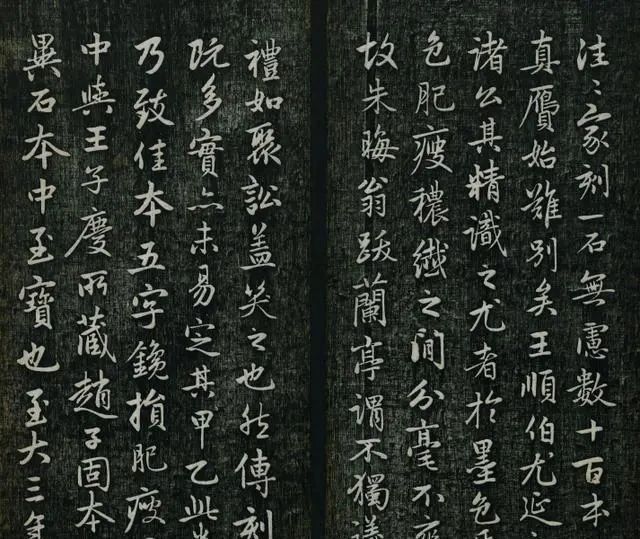 往〻家刻一石無慮數十百本
真贋始難別矣王順伯尤延
諸公其精識之尤者於墨色
色肥瘦穠纖之間分毫不
故朱晦翁跋蘭亭謂不獨議
禮如聚訟蓋笑之也然傳刻
既多實亦未易定其甲乙此
乃致佳本五字鑱損肥瘦
中與王子慶所藏趙子固本
異石本中至寶也至大三年